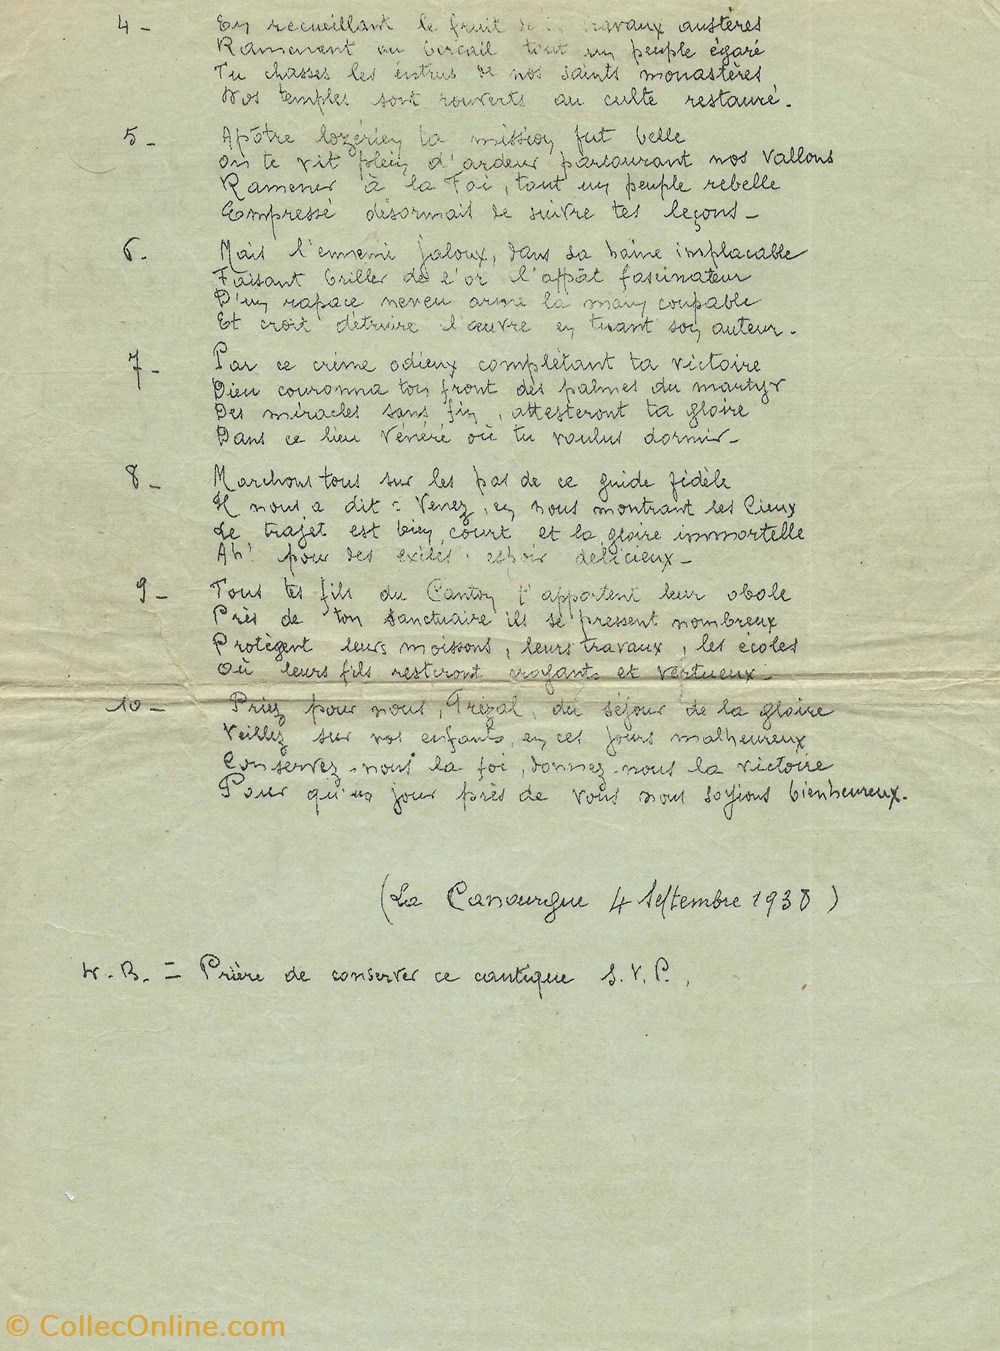 4- En recueillant le fruit de travaux austères
Ramenant au bercail tout un peuple égaré
Tu chasses les intrus de nos saints monastères
Nos temples sont rouverts au culte restauré.
5- Apôtre lozérien ta mission fut belle
On te vit plein d'ardeur parcourant nos vallons
Ramener à la Foi, tout un peuple rebelle
Empressé désormais de suivre tes leçons-
6. Mais l'ennemi jaloux, dans sa haine implacable
Faisant briller de l'or l'appât fascinateur
D'un rapace neveu arme la main coupable
Et croit détruire l'œuvre en tuant son auteur.
7- Par ce crime odieux complétant ta victoire
Dieu couronna ton front des palmes du martyr
Des miracles sans fin, attesteront ta gloire
Dans ce lieu vénéré où tu voulus dormir-
8- Marchons tous sur les pas de ce guide fidèle
Il nous a dit = Venez, en nous montrant les Cieux
Le trajet est bien court et la gloire immortelle
Ah! pour des exilés, espoir délicieux-
9- Tous tes fils du Canton t'apportent leur obole
Près de ton sanctuaire ils se pressent nombreux
Protègent leurs moissons, leurs travaux, les écoles
Où leurs fils resteront croyants et vertueux-
10- Priez pour nous, Frézal, du séjour de la gloire
Veillez sur vos enfants, en ces jours malheureux
Conservez-nous la foi, donnez-nous la victoire
Pour qu'un jour près de vous nous soyions bienheureux.
(La Canourgue 4 Septembre 1938)
N.B. = Prière de conserver ce cantique S.V.P.
© CollecOnline.com